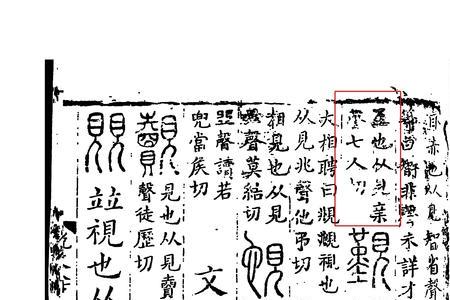 目赤也从見智省聲
非聲未詳才
至也从見亲
聲七人切
大相聘曰覜覜視也
从見兆聲他弔切
相見也从見
必聲莫結切
聲讀若
兜當矦切
見也从見賣
聲徒歷切
文
覞竝視也从